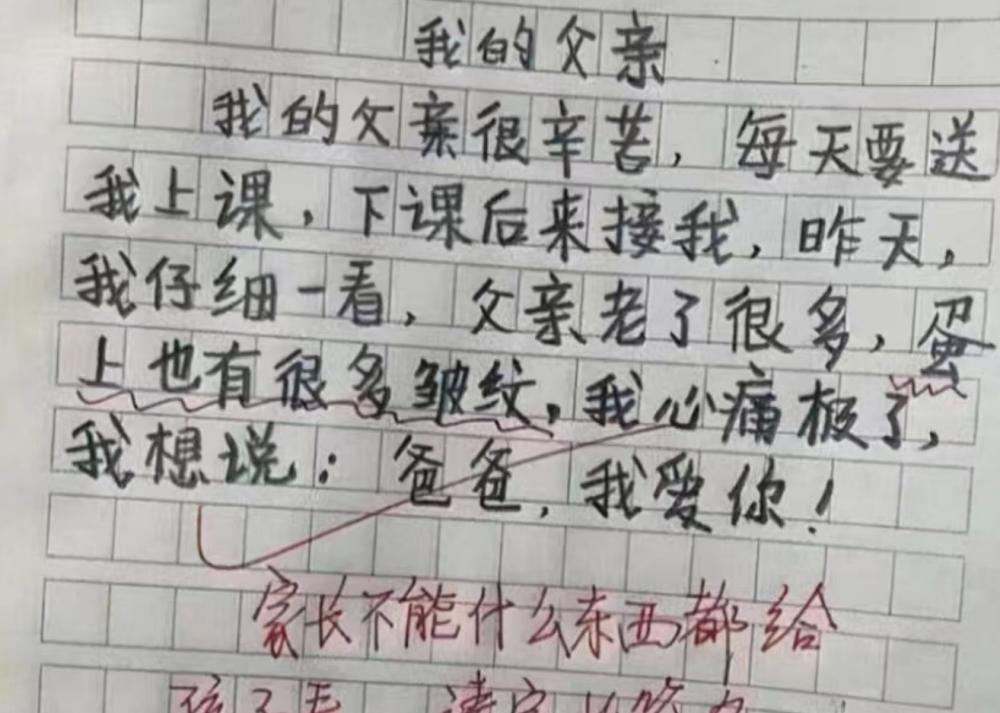 我的父亲
我的父亲很辛苦，每天要送
我上课，下课后来接我，昨天，
我仔细一看，父亲老了很多，蛋
上也有很多皱纹，我心痛极了，
我想说：爸爸，我爱你！
家长不能什么东西都给
孩子看